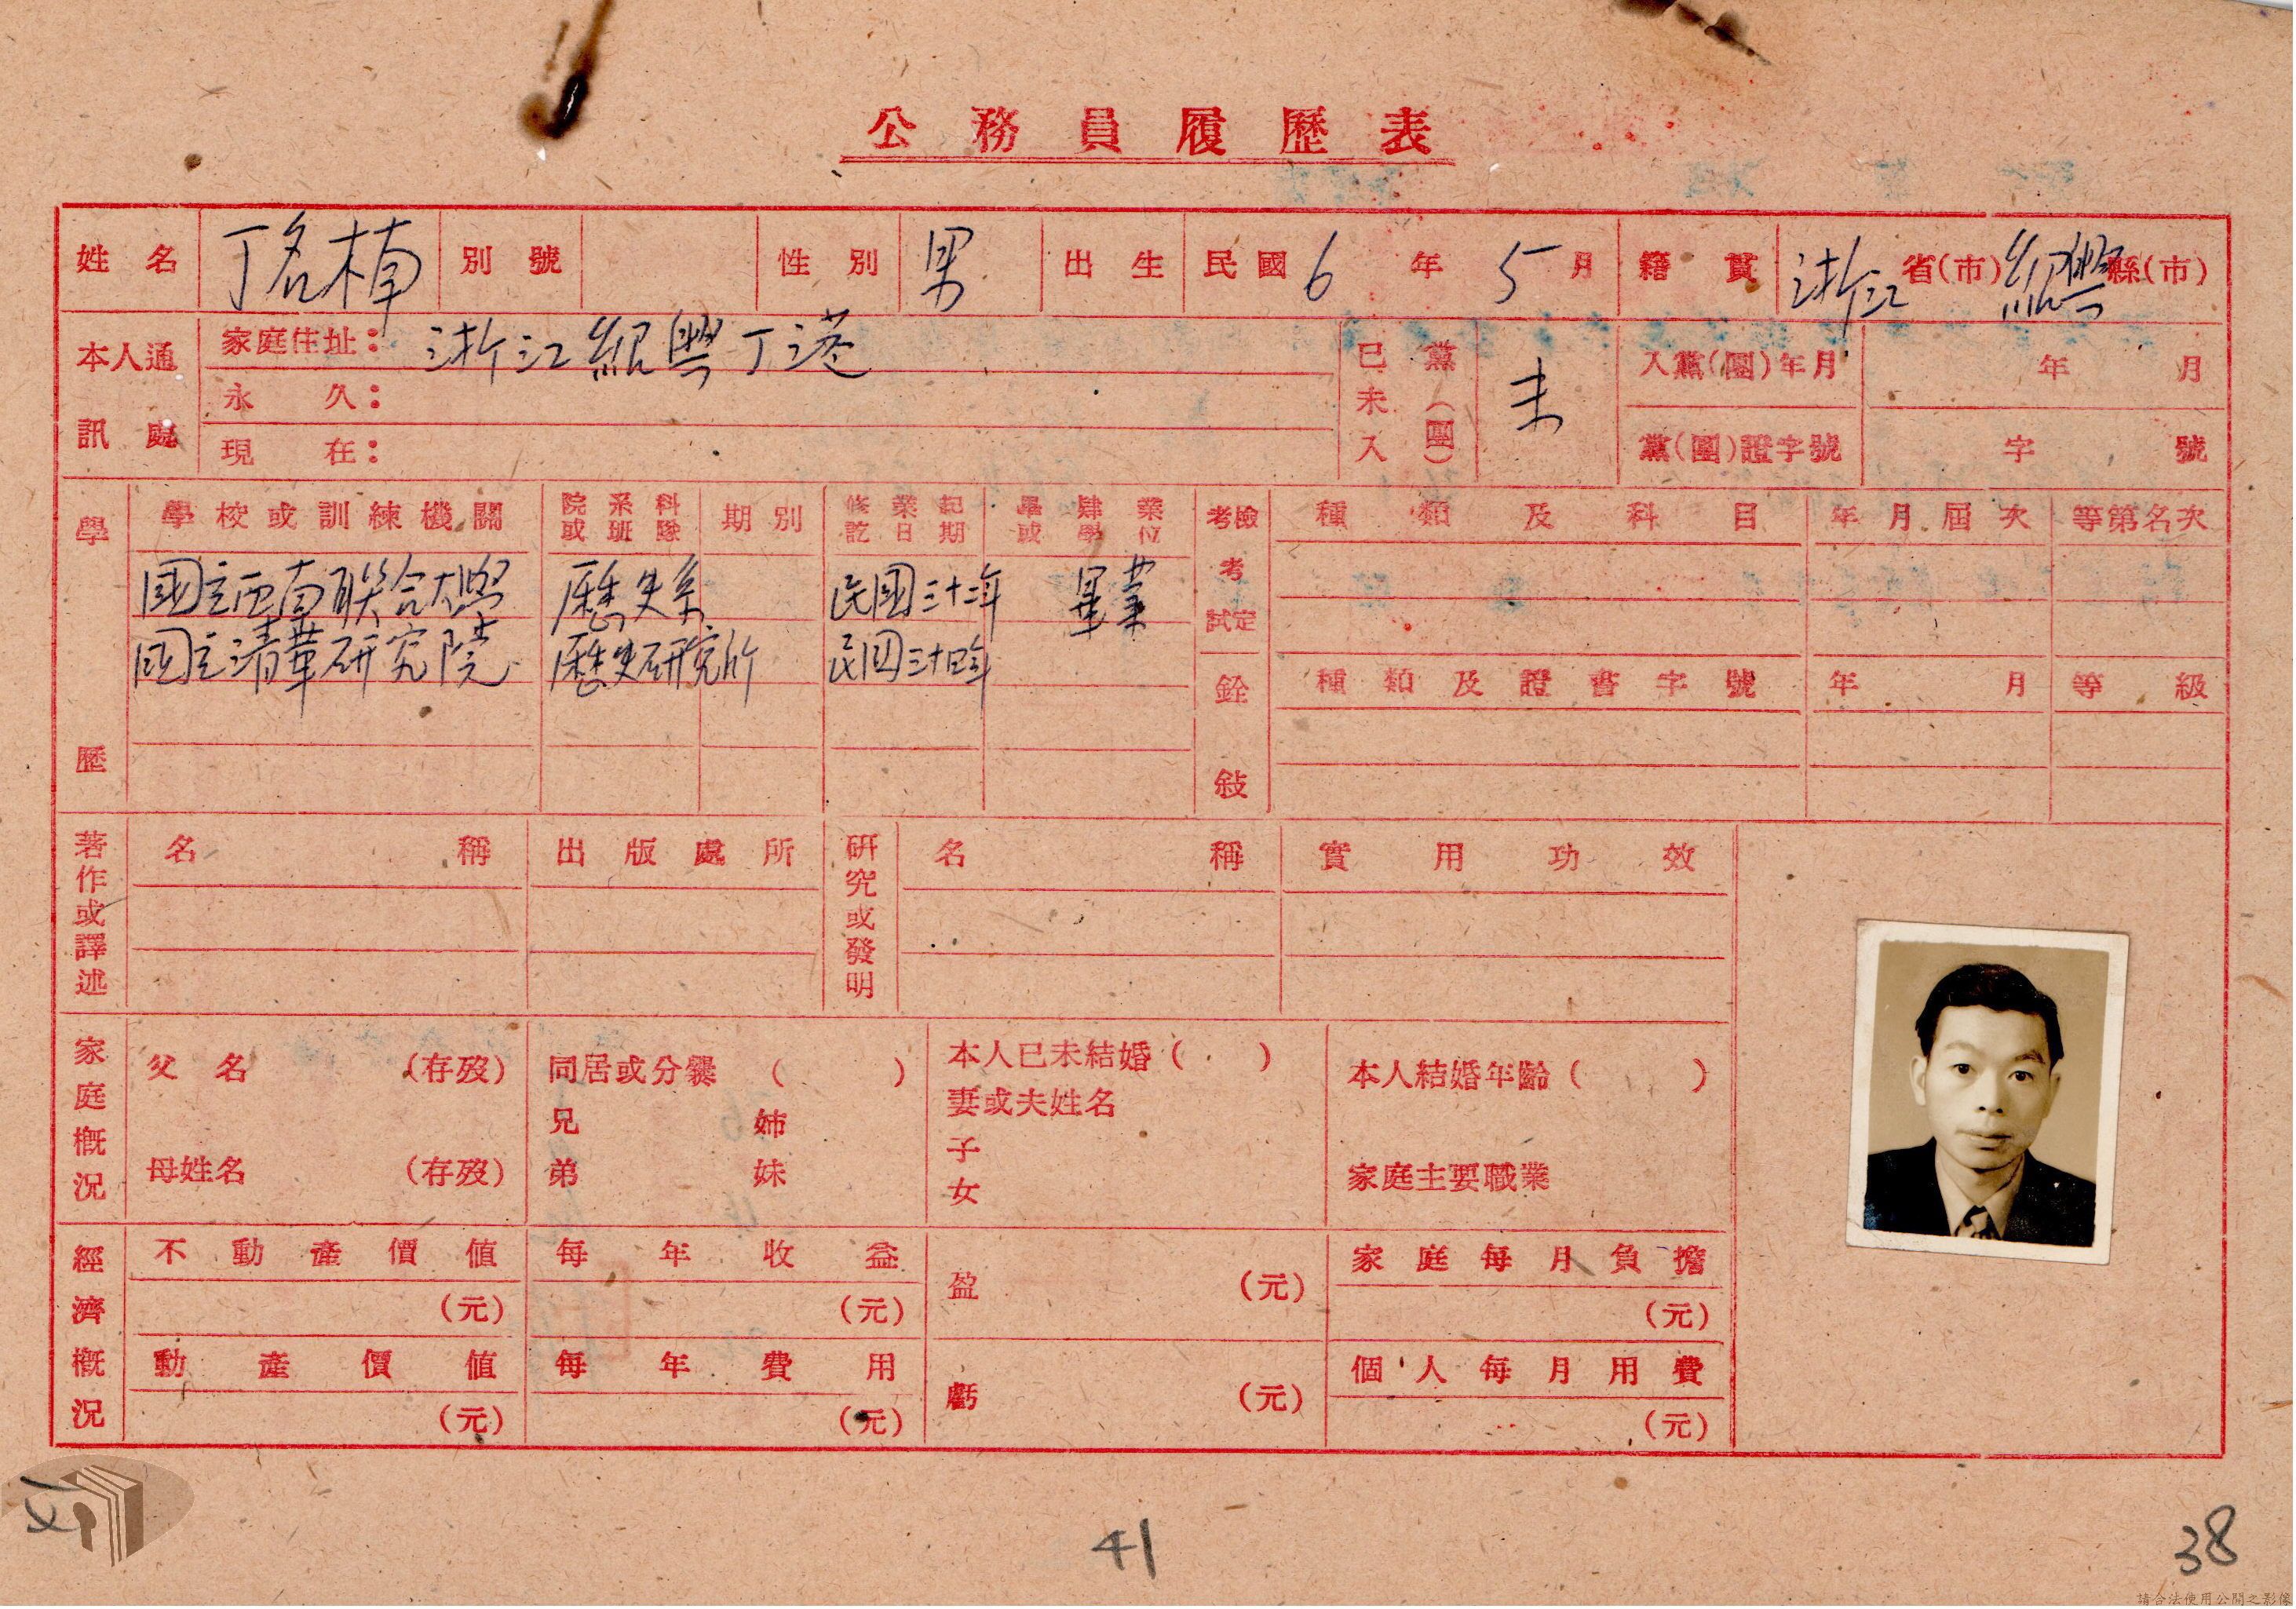 公務員履歷表
姓名 丁名楠 別號 性別 男 出生 民國6年5月 籍貫 浙江省(市)紹興縣(市)
本人通訊處 家庭住址：浙江紹興丁港
永久：
現在：
已未入黨(團) 未 入黨(團)年月 年 月
黨(團)證字號 字 號
學歷 學校或訓練機關 院系科或班隊 期別 修業起訖日期 畢肄業或學位
國立西南聯合大學 歷史系 民國三十二年 畢業
國立清華研究院 歷史研究所 民國三十四年
考試檢定 種類及科目 年月屆次 等第名次
銓敍 種類及證書字號 年月 等級
著作或譯述 名稱 出版處所 研究或發明 名稱 實用功效
家庭概況 父名 (存歿) 同居或分爨( ) 本人已未結婚( ) 本人結婚年齡( )
妻或夫姓名
兄 姊
子
母姓名 (存歿) 弟 妹 家庭主要職業
女
經濟概況 不動產價值 每年收益 盈 (元) 家庭每月負擔
(元) (元) (元)
動產價值 每年費用 虧 (元) 個人每月用費
(元) (元) (元)
41
38
請合法使用公開之影像